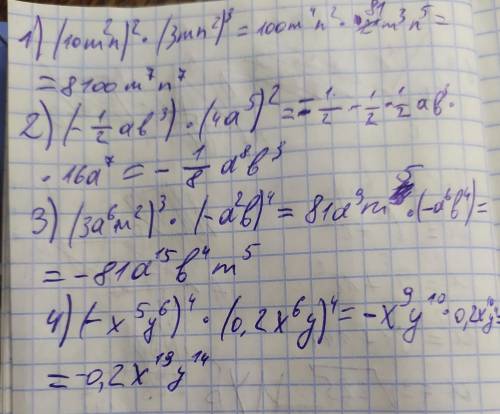 1) (10m²n)² · (3mn²)³ = 100m⁴n² · 81m³n⁵ =
= 8100m⁷n⁷
2) (-1/2 ab³) · (4a⁵)² = -1/2 · -1/2 · -1/2 ab³ ·
· 16a⁷ = -1/8 a⁸b³
3) (3a⁶m²)³ · (-a²b)⁴ = 81a⁹m⁵ · (-a⁶b⁴) =
= -81a¹⁵b⁴m⁵
4) (-x⁵y⁶)⁴ · (0,2x⁶y)⁴ = -x⁹y¹⁰ · 0,2x¹⁰y⁴
= -0,2x¹⁹y¹⁴